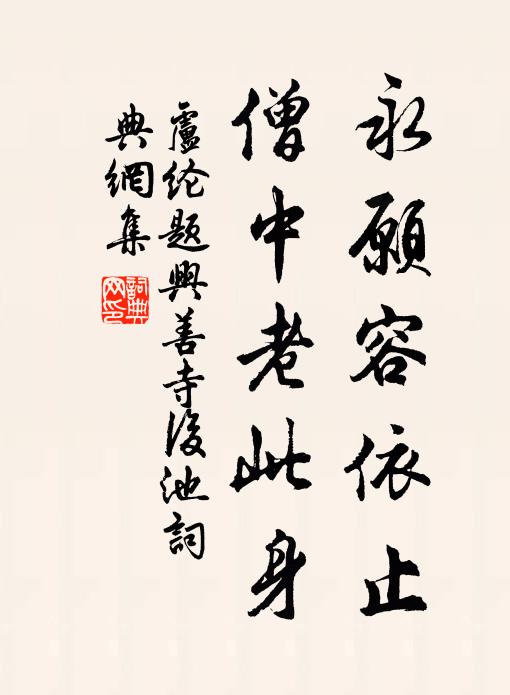 永願容依止
僧中老此身
盧纶题興善寺後池詞
典網集
詞典
网印